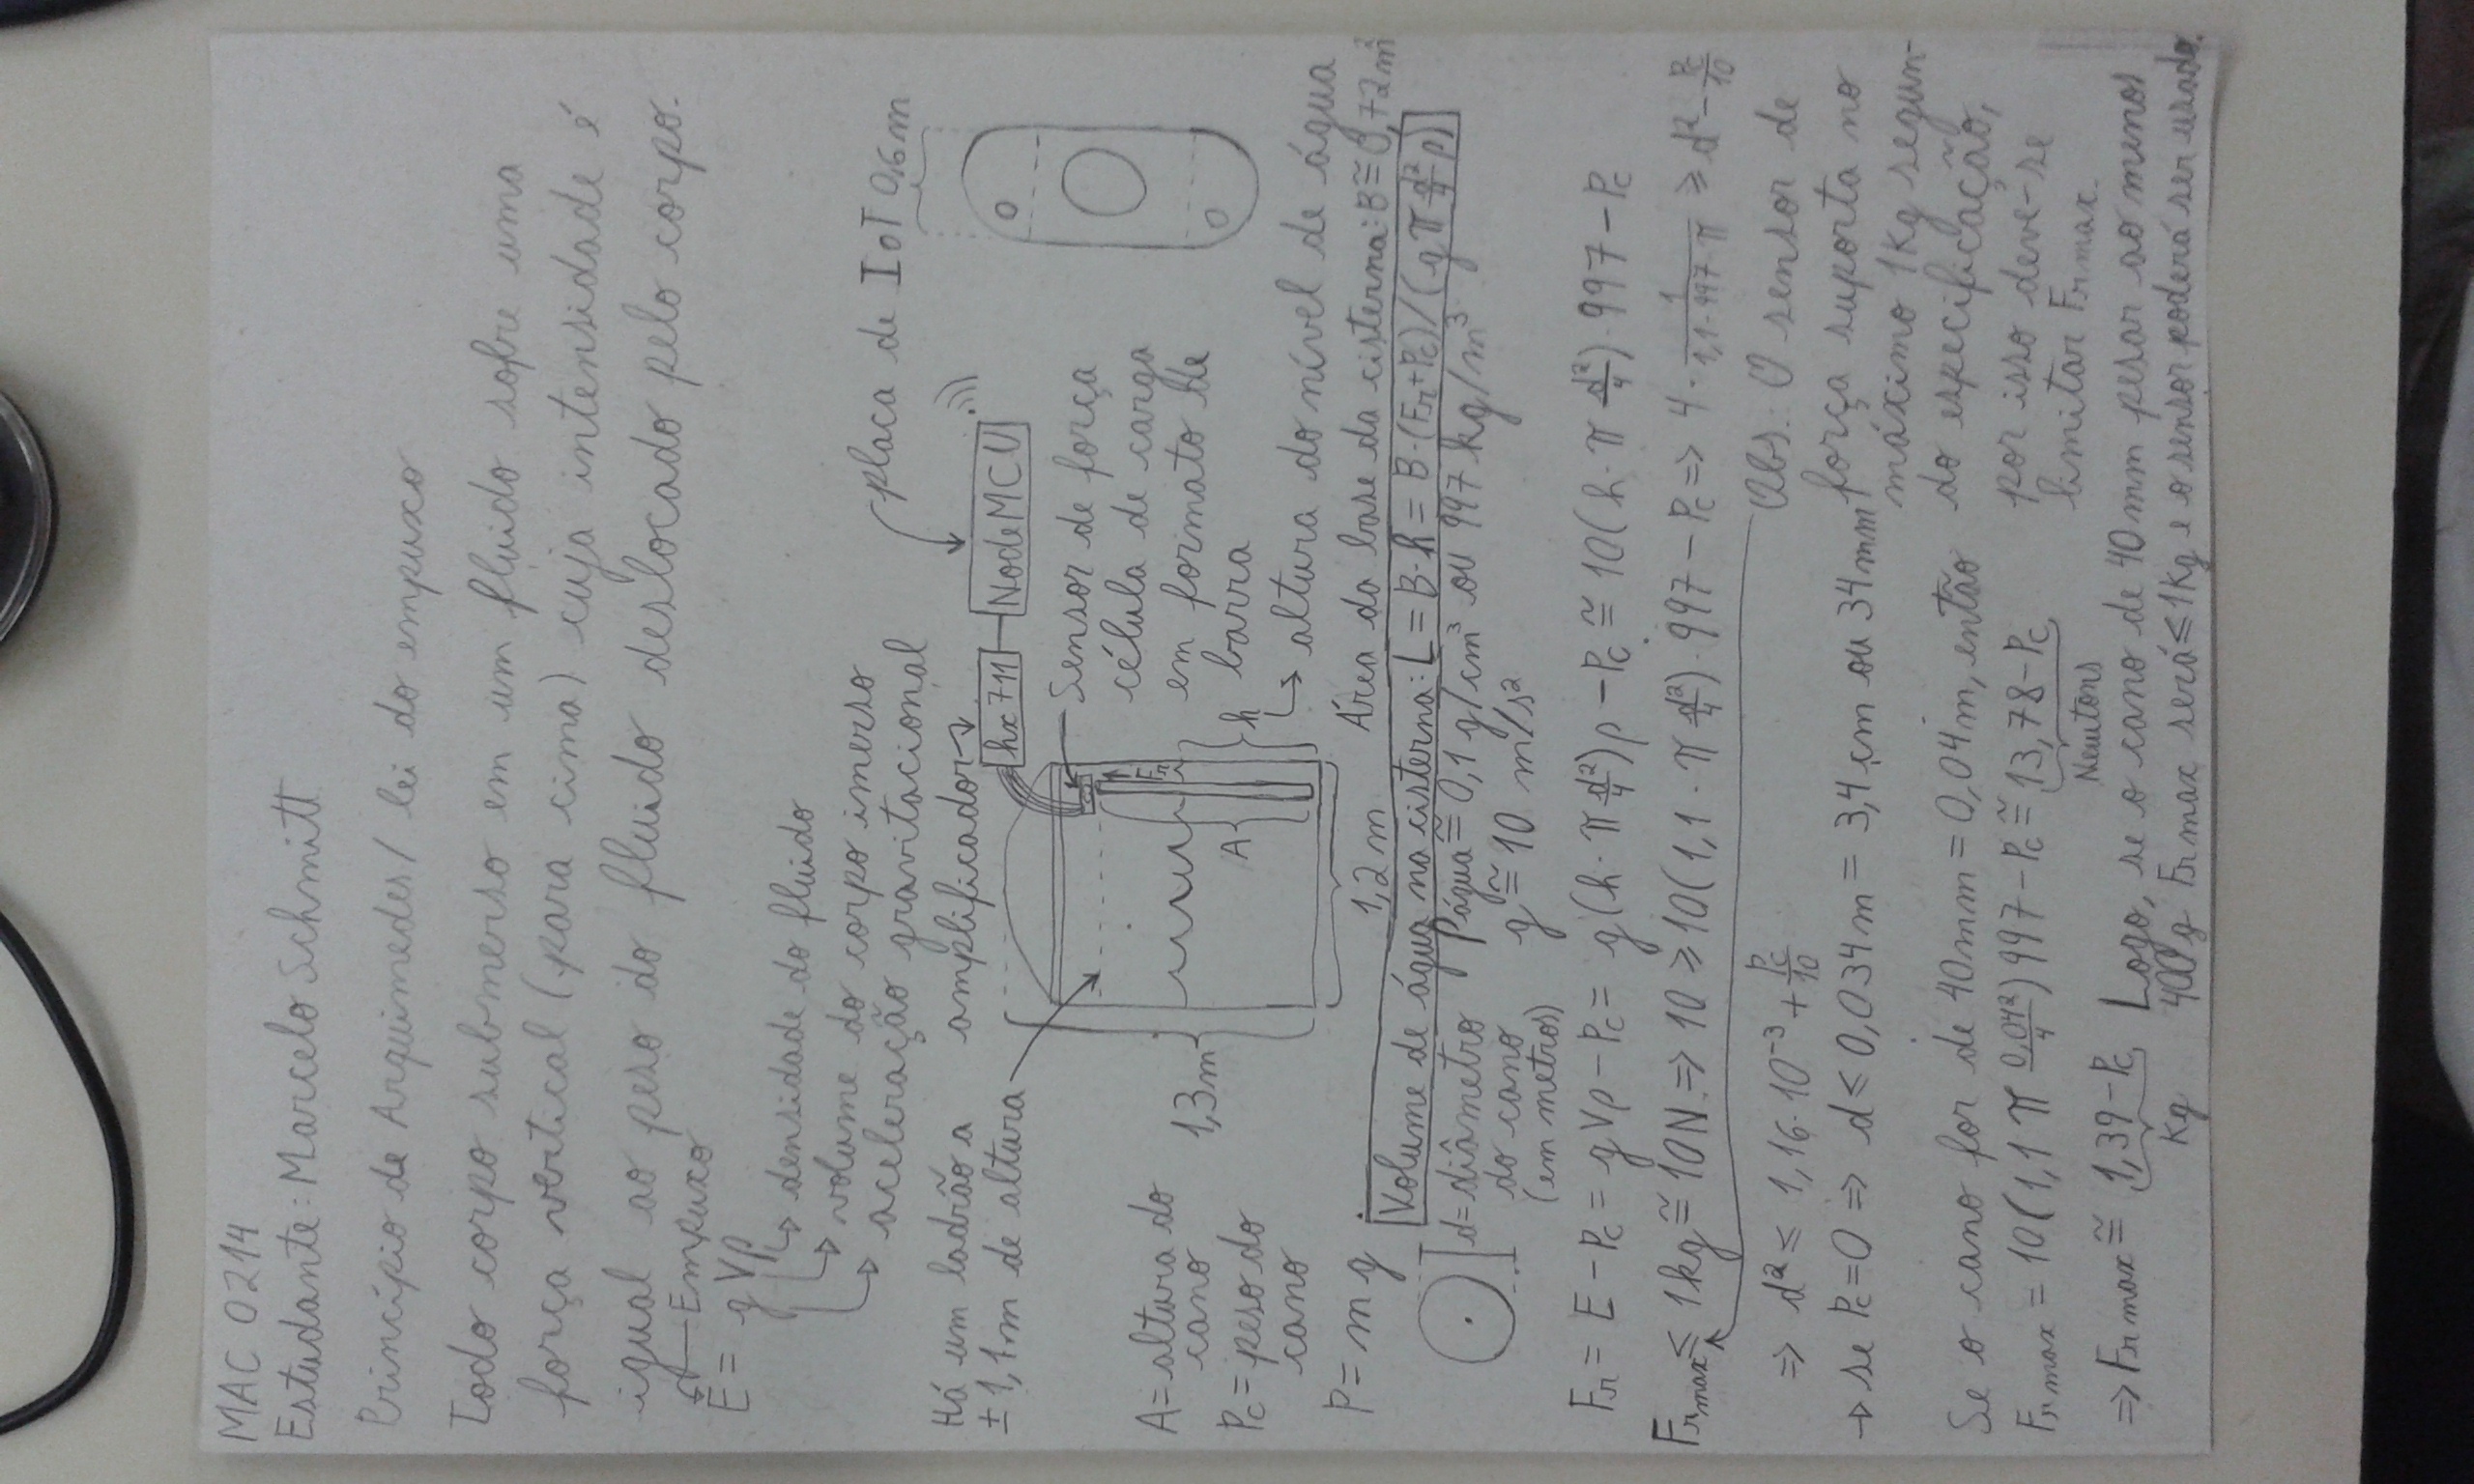 MAC 0214
Estudante: Marcelo Schmitt
Princípio de Arquimedes / lei do empuxo
Todo corpo submerso em um fluido sofre uma
força vertical (para cima) cuja intensidade é
igual ao peso do fluido deslocado pelo corpo.
Empuxo
E = gVρ
densidade do fluido
volume do corpo imerso
aceleração gravitacional
placa de IoT
0,6m
Há um ladrão a
± 1,1m de altura
amplificador
hx711
NodeMCU
Sensor de força
célula de carga
em formato de
barra
Fr
A = altura do
cano
Pc = peso do
cano
1,3m
A
h
altura do nível de água
P = mg
1,2m
Área da base da cisterna: B ≅ 0,72m²
Volume de água na cisterna: L = B·h = B·(Fr+Pc)/(gπ d²/4 ρ)
d = diâmetro
do cano
(em metros)
ρágua ≅ 0,1g/cm³ ou 997 kg/m³
g ≅ 10 m/s²
Fr = E - Pc = gVρ - Pc = g(h·π d²/4)ρ - Pc ≅ 10(h·π d²/4)·997 - Pc
Frmax ≤ 1kg ≅ 10N => 10 ≥ 10(1,1·π d²/4)·997 - Pc => 4· 1/(1,1·997·π) ≥ d² - Pc/10
=> d² ≤ 1,16·10⁻³ + Pc/10
→ se Pc=0 => d ≤ 0,034m = 3,4cm ou 34mm
Obs.: O sensor de
força suporta no
máximo 1Kg segun-
do especificação,
por isso deve-se
limitar Frmax.
Se o cano for de 40mm = 0,04m, então
Frmax = 10(1,1 π 0,04²/4)997 - Pc ≅ 13,78 - Pc
Newtons
=> Frmax ≅ 1,39 - Pc
Kg
Logo, se o cano de 40mm pesar ao menos
400g Frmax será ≤ 1Kg e o sensor poderá ser usado.